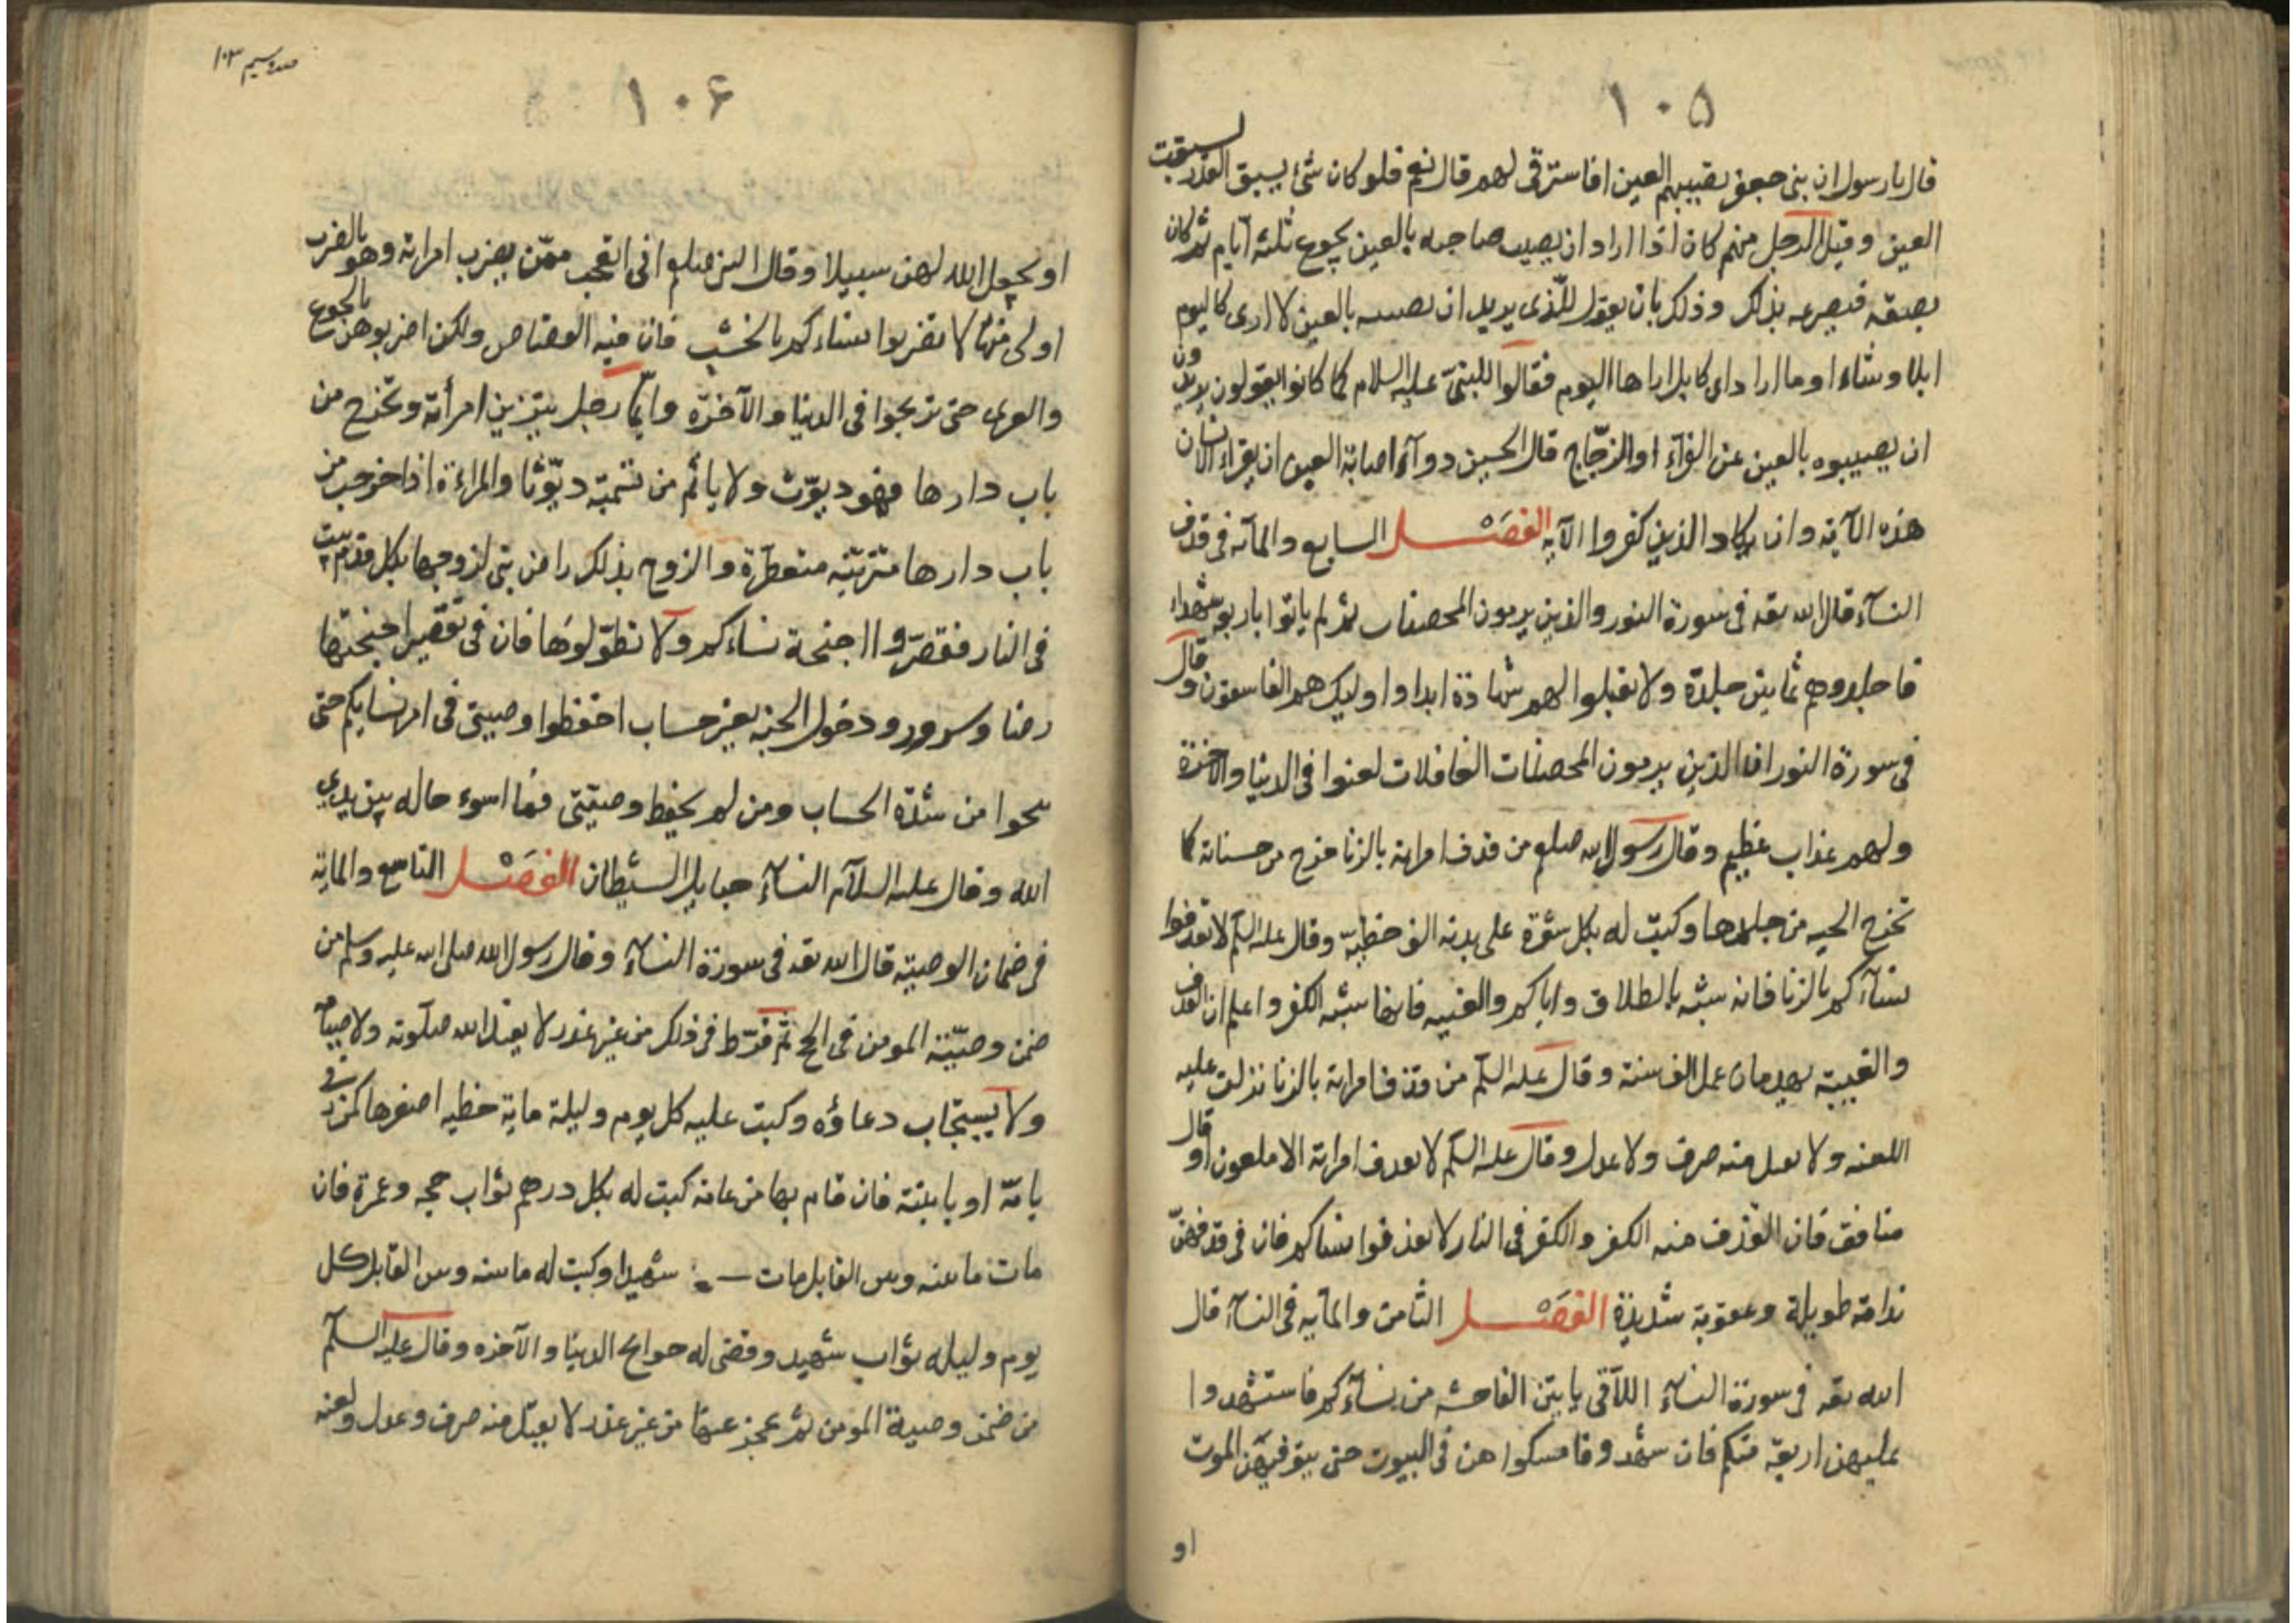 ١٠٥
قال يا رسول ان بنى جعفر يصيبهم العين افاسترقى لهم قال نعم فلو كان شئ يسبق القدر لسبقت
العين وقيل الرجل منهم كان اذا اراد ان يصيب صاحبه بالعين يجوع ثلثة ايام ثم كان
بصفة فيصرعه بذلك وذلك بان يقول للذى يريد ان يصيبه بالعين لا ارى كاليوم
ابلا وشاء او ما اراد اى كابل اراها اليوم فقالوا للنبى عليه السلام كما كانوا يقولون يريدون
ان يصيبوه بالعين عن الفرآء او الزجّاج قال الحسن دوآء اصابة العين ان يقراء الانسان
هذه الآية وان يكاد الذين كفروا الآية الفصل السابع والمآئه فى قذف
النسآء قال الله تعه فى سورة النور والذين يرمون المحصنات ثم لم ياتوا باربعه شهداء
فاجلدوهم ثمانين جلدة ولا تقبلوا لهم شهادة ابدا واوليك هم الفاسقون وقال
فى سورة النور ان الذين يرمون المحصنات الغافلات لعنوا فى الدنيا والاخرة
ولهم عذاب عظيم وقال رسول الله صلعم من قذف امراته بالزنا خرج من حسناته كما
تخرج الحيه من جلدها وكتب له بكل شعرة على بدنه الف خطية وقال عليه السلم لا تقذفوا
نسآءكم بالزنا فانه شبه بالطلاق واياكم والغيبه فانها شبه الكفر واعلم ان القذف
والغيبة يهدمان عمل الف سنة وقال عليه السلم من قذف امراته بالزنا نزلت عليه
اللعنه ولا يقبل منه صرف ولا عدل وقال عليه السلم لا يقذف امراته الا ملعون او قال
منافق فان القذف منه الكفر والكفر فى النار لا تقذفوا نساكم فان فى قذفهنّ
ندامة طويلة وعقوبة شديدة الفصل الثامن والمآيه فى النسآء قال
الله تعه فى سورة النسآء اللآتى ياتين الفاحشه من نسآءكم فاستشهدوا
عليهن اربعة منكم فان شهدوا فامسكواهن فى البيوت حتى يتوفيهن الموت
او
صدوسيم ١٠٣
١٠۶
او يجعل الله لهن سبيلا وقال النبى صلعم انى اتعجب ممّن يضرب امراته وهو بالضرب
اولى منها لا تضربوا نساءكم بالخشب فان فيه القصاص ولكن اضربوهن بالجوع
والعرى حتى تربحوا فى الدنيا والآخرة وايّما رجل يتزين امرأته وتخرج من
باب دارها فهو ديّوث ولا ياثم من تسميّه ديّوثا والمراءة اذا خرجت من
باب دارها متزينة متعطرة والزوج بذلك راض بنى لزوجها بكل قدم بيت
فى النار فقصّروا اجنحة نساءكم ولا تطوّلوها فان فى تقصير اجنحتها
رضا وسرور ودخول الجنه بغير حساب احفظوا وصيتى فى امر نسايكم حتى
تنجوا من شدّة الحساب ومن لم يحفظ وصيّتى فما اسوء حاله بين يدى
الله وقال عليه السلآم النسآء حبايل الشيطان الفصل التاسع والماية
فى ضمان الوصية قال الله تعه فى سورة النسآء وقال رسول الله صلى الله عليه وسلم من
ضمن وصيّة المومن فى الحج ثم فرّط فى ذلك من غير عذر لا يقبل الله صلوته ولا صيامه
ولا يستجاب دعاؤه وكتب عليه كل يوم وليلة ماية خطيه اصغرها كمن زنى
بامّه او بابنته فان قام بها من عامه كتب له بكل درهم ثواب حجه وعمرة فان
مات ما بينه وبين القابل مات شهيدا وكتب له ما بينه وبين القابل كل
يوم وليله ثواب شهيد وقضى له حوايج الدنيا والآخره وقال عليه السلم
من ضمن وصية المومن ثم عجز عنها من غير عذر لا يقبل منه صرف وعدل ولعنه